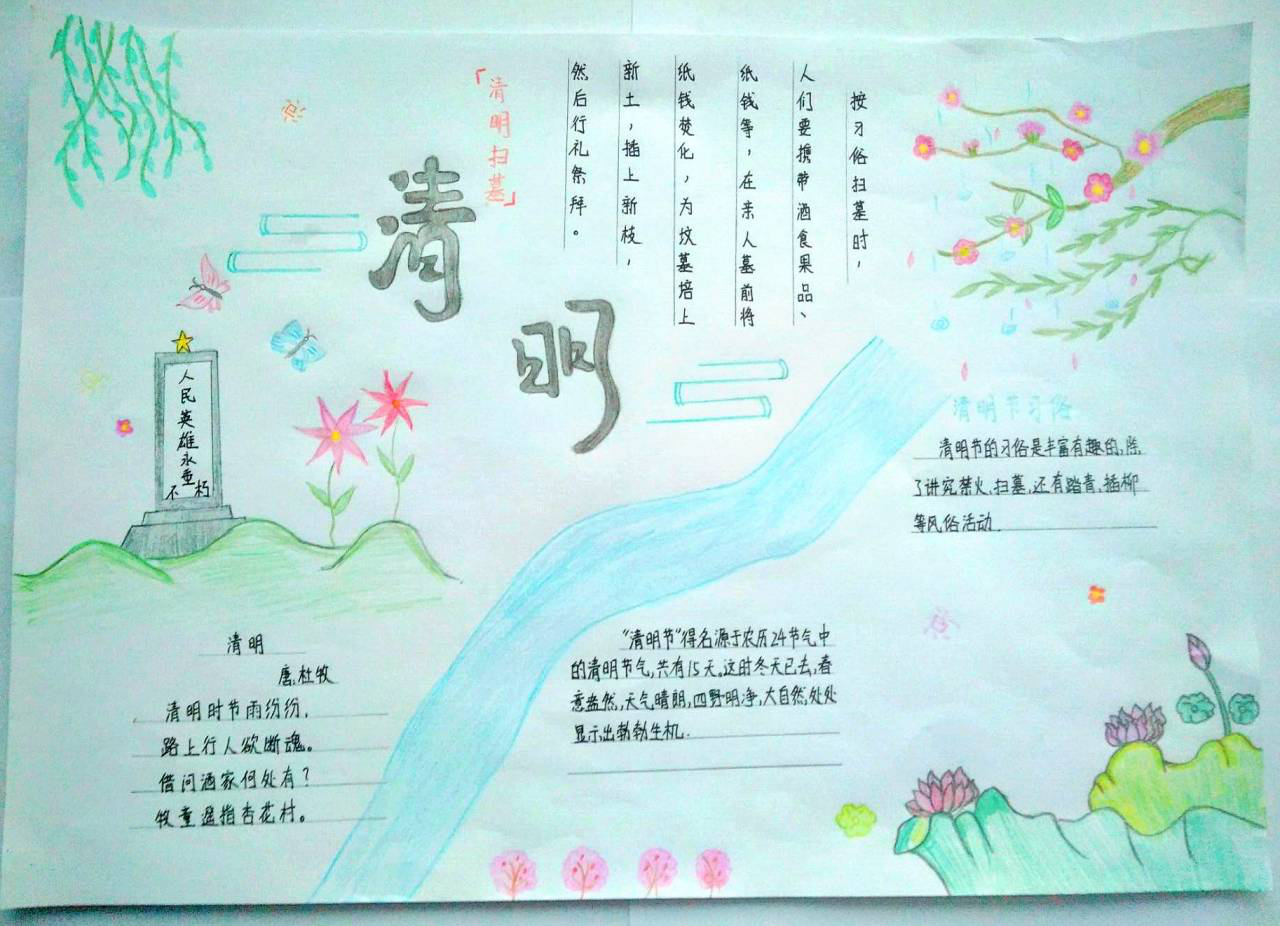 「清明扫墓」
清明
按习俗扫墓时，
人们要携带酒食果品、
纸钱等，在亲人墓前将
纸钱焚化，为坟墓培上
新土，插上新枝，
然后行礼祭拜。
人民英雄永垂
不朽
清明节习俗
清明节的习俗是丰富有趣的,除
了讲究禁火,扫墓,还有踏青,插柳
等风俗活动.
清明
唐,杜牧
清明时节雨纷纷,
路上行人欲断魂。
借问酒家何处有?
牧童遥指杏花村。
"清明节"得名源于农历24节气中
的清明节气,共有15天,这时冬天已去,春
意盎然,天气晴朗,四野明净,大自然,处处
显示出勃勃生机.